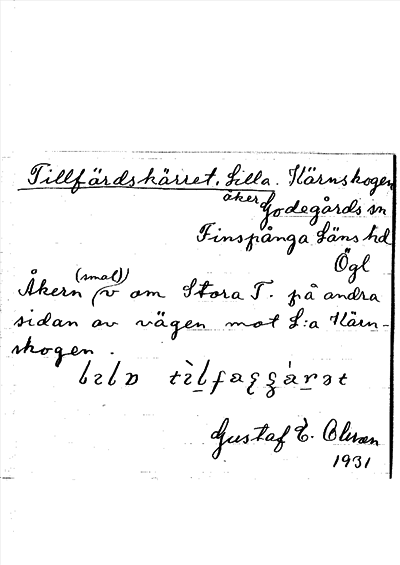 Tillfärdskärret, Lilla. Kärnskogen
åker Godegårds sn
Finspånga Läns hd
Ögl
Åkern (smal) v om Stora T. på andra
sidan av vägen mot L:a Kärn-
skogen.
Gustaf E.
1931